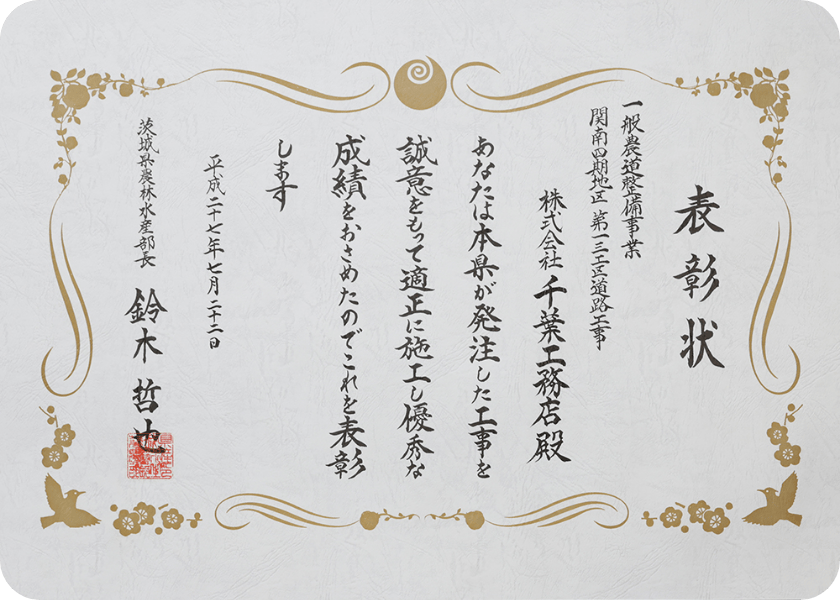 表彰状
一般農道整備事業
関南四期地区 第一三工区道路工事
株式会社 千葉工務店殿
あなたは本県が発注した工事を
誠意をもって適正に施工し優秀な
成績をおさめたのでこれを表彰
します
平成二十七年七月二十二日
茨城県農林水産部長 鈴木哲也